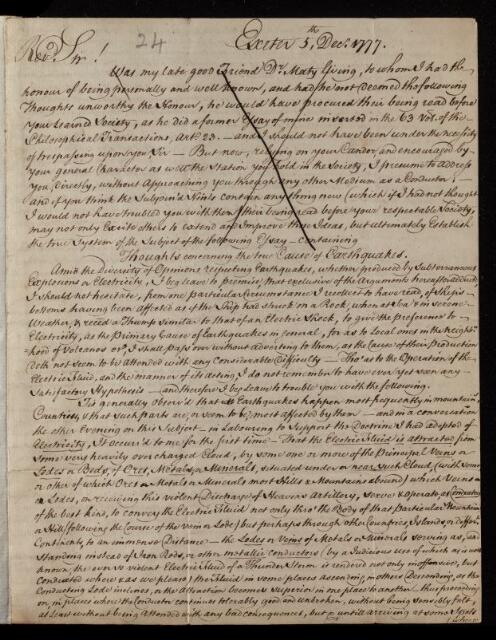 24
Exeter 5th Decr. 1777.
Revd. Sir!
Was my late good Friend Dr. Maty living, to whom I had the
honour of being personally and well known, and had he not deemed the following
Thoughts unworthy the Honour, he would have procured their being read before
your learned Society, as he did a former Essay of mine inserted in the 63 Vol. of the
Philosophical Transactions, Art. 23. — and I should not have been under the necessity
of trespassing upon you Sir — But now, relying on your Candor, and encouraged by
your general Character as well as the Station you hold in the Society, I presume to address
you, directly, without Approaching you through any other Medium as a Conductor;
and if you think the Subjoin'd Hints contain anything new (which if I had not thought
I would not have troubled you with them) their being read before your respectable Society,
may not only Excite others to extend and Improve these Ideas, but ultimately Establish
the true System of the Subject of the following Essay — containing
Thoughts concerning the true Cause of Earthquakes.
Amidst the Diversity of Opinions respecting Earthquakes, whether produced by Subterraneous
Explosions or Electricity, I beg leave to premise, that exclusive of the Arguments thereafter adduced,
I should not hesitate, from one particular circumstance I recollect to have read, of Ships-
bottoms having been affected as if the Ship had struck on a Rock when at Sea & in serene
Weather, & reced a Thump similar to that of an Electric Shock, to give the preference to
Electricity, as the Primary Cause of Earthquakes in general, for as to Local ones in the Neighbr-
-hood of Volcanos &c, I shall pass over without adverting to them, as the Cause of their Production
doth not seem to be attended with any Considerable Difficulty — Tho' as to the Operation of the
Electric Fluid, and the manner of its acting, I do not remember to have ever yet seen any
Satisfactory Hypothesis — and therefore I beg Leave to trouble you with the following.
'Tis generally observ'd that Earthquakes happen most frequently in mountainous
Countries, & that such parts are, or seem to be, most affected by them — and in a conversation
the other Evening on this Subject — in Labouring to Support the Doctrine I had adopted of
Electricity, It occur'd to me for the first time — That the Electric Fluid is attracted from
some very heavily overcharged Cloud, by some one or more of the Principal Veins or
Lodes or Beds, of Ores, Metals, or Minerals, situated under or near such Cloud (with some
or other of which Ores or Metals or Minerals most Hills & Mountains abound) which Veins
or Lodes, on receiving this violent Discharge of Heavens Artillery, serve & operate, as Conductors
of the best kind, to convey the Electric Fluid not only thro' the Body of that particular Mountain
or Hill (following the Course of the Vein or Lode) but perhaps through other Countries, Islands, or differt.
Continents, to an immense Distance — the Lodes or Veins of Metals or Minerals serving as, and
standing instead of Iron Rods, or other metallic conductors (by a Judicious use of which as is well
known, the ever so violent Electric Fluid of a Thunder Storm is rendered not only inoffensive, but
conducted where & as we please) the Fluid in some places ascending, in others Descending, as the
Conducting Lode inclines, or the attraction becomes superior in one place to another, thus proceeding
on, in places where the Conductor continues tolerably good and unbroken, without being sensibly felt,
at least without being attended with any bad consequences, but untill arriving at some Spots